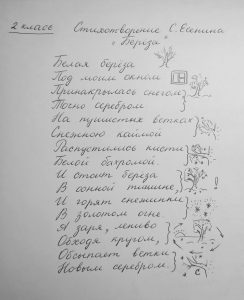 2 класс Стихотворение С. Есенина
"Берёза"
Белая берёза
Под моим окном
Принакрылась снегом
Точно серебром
На пушистых ветках
Снежною каймой
Распустились кисти
Белой бахромой.
И стоит берёза
В сонной тишине,
И горят снежинки
В золотом огне.
А заря, лениво
Обходя кругом,
Обсыпает ветки
Новым серебром.